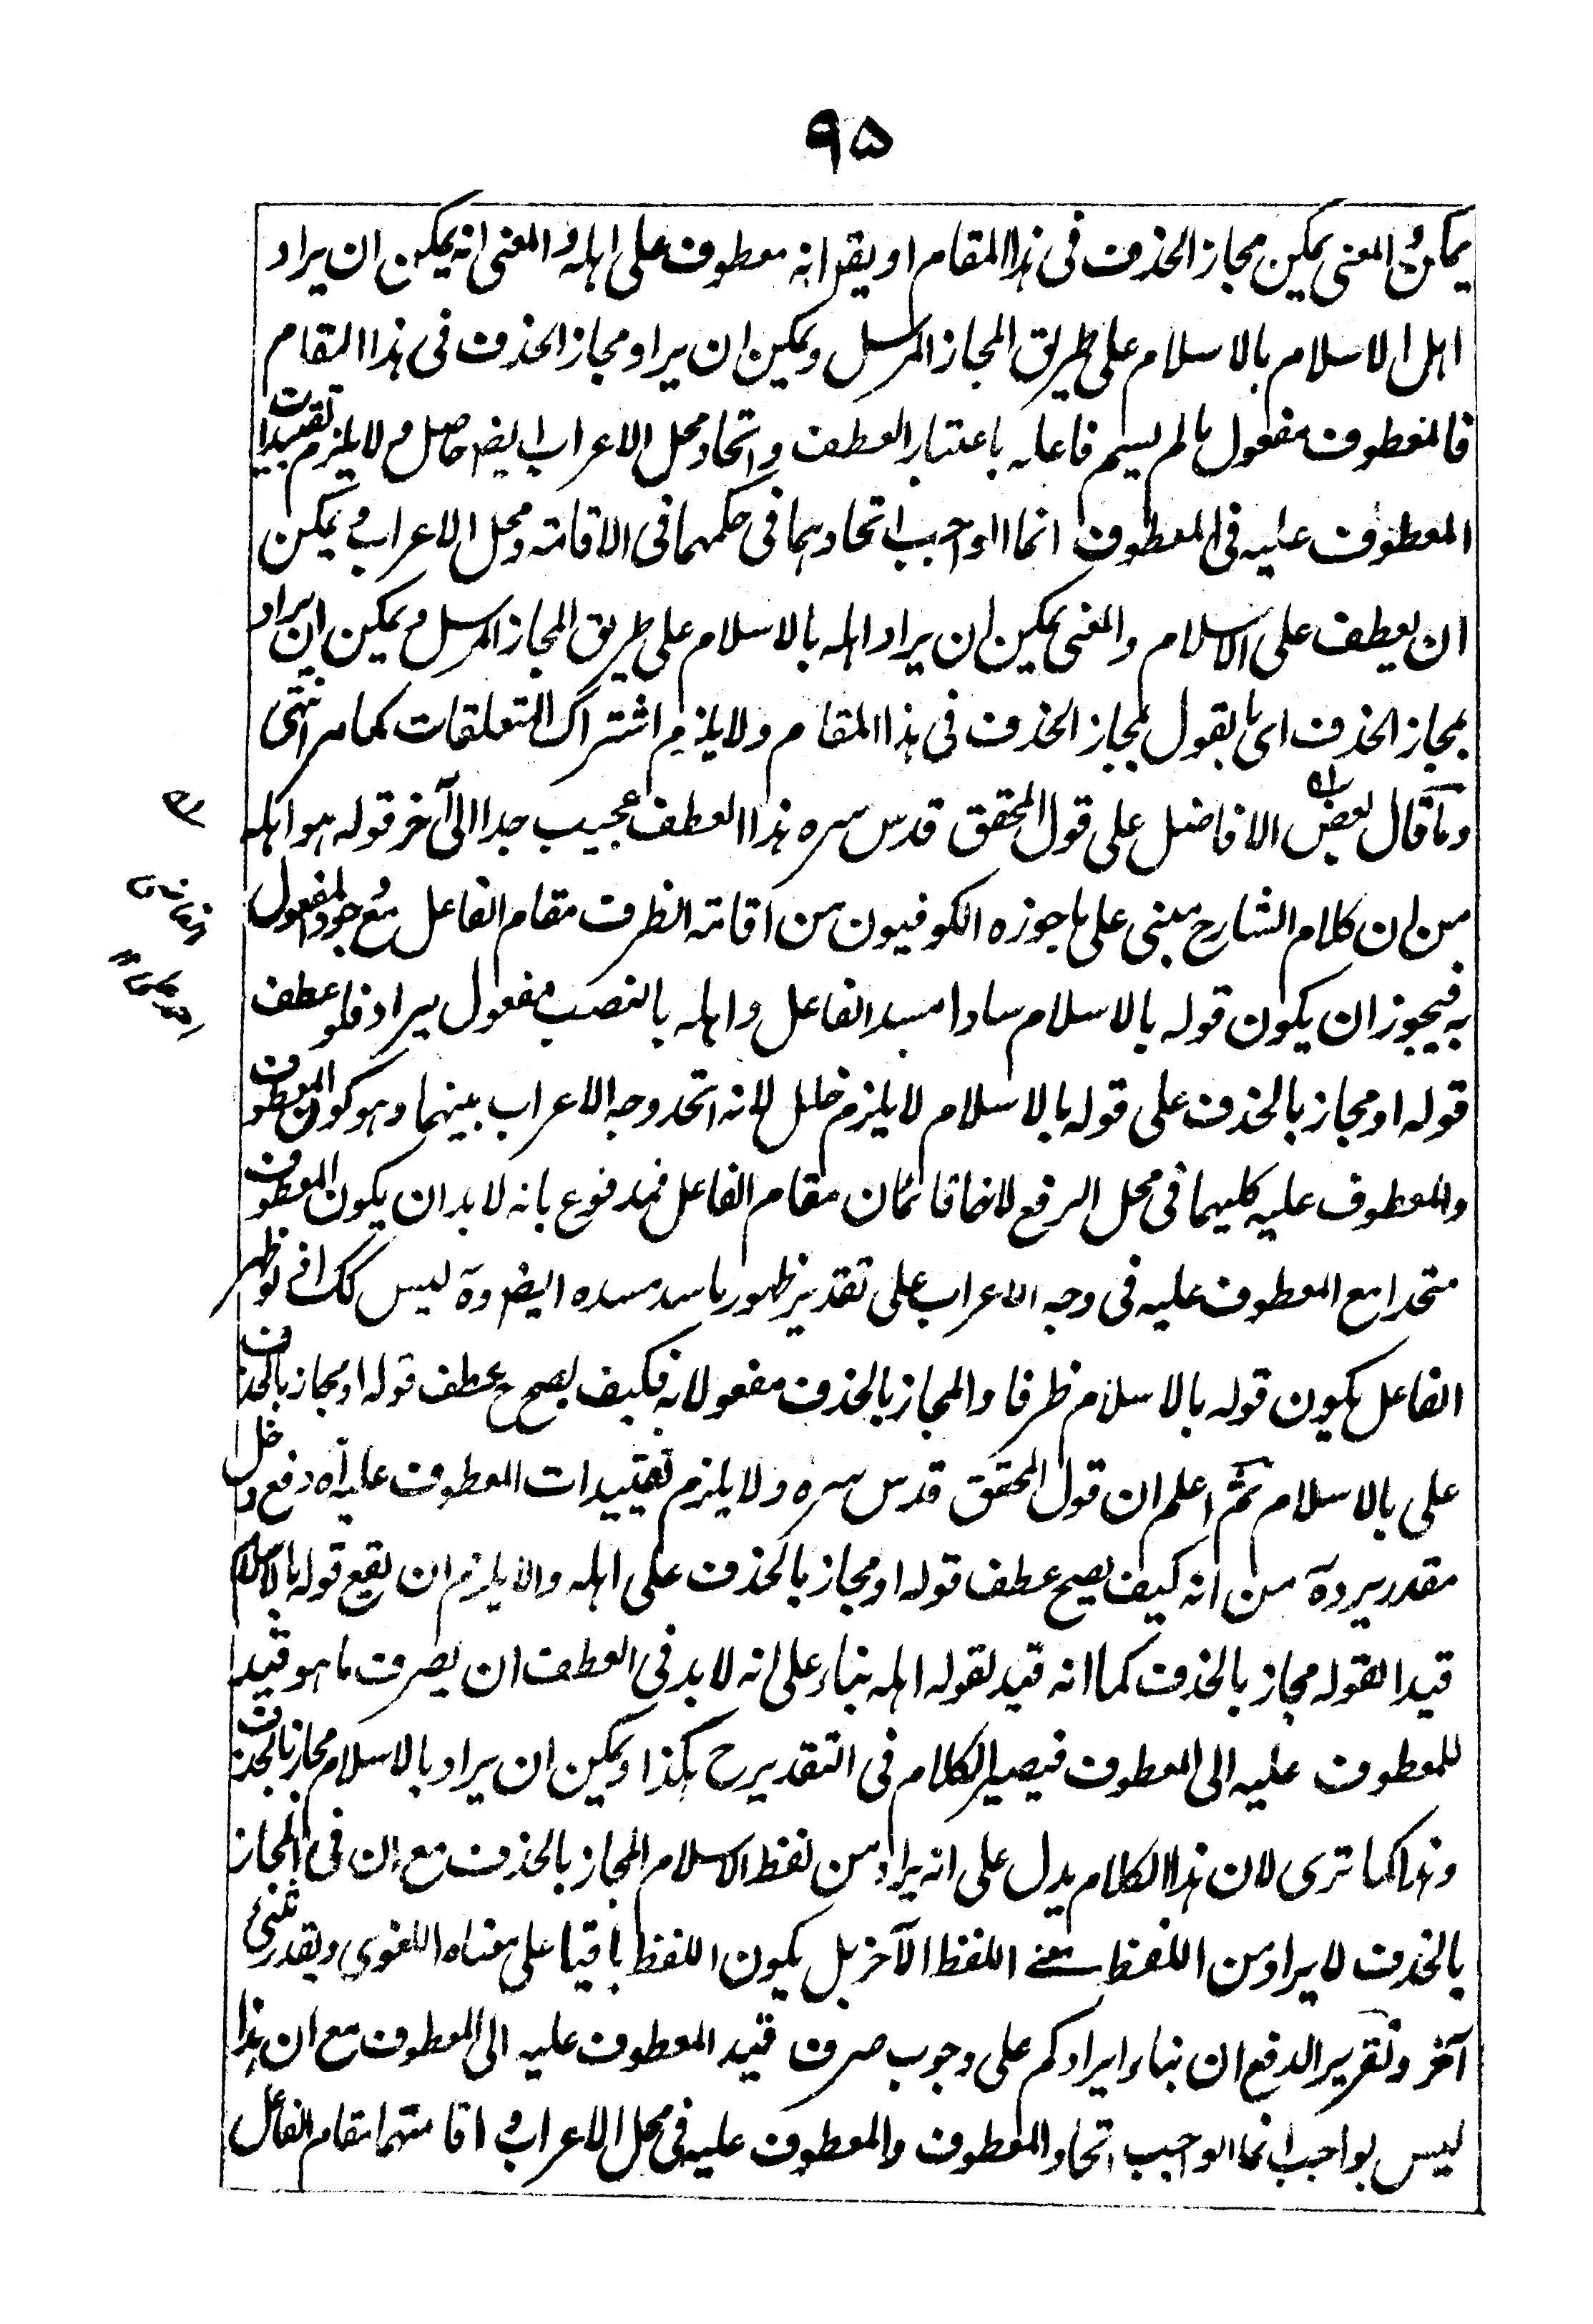 ٩٥
يمكن والمعنى يمكن مجاز الحذف فى هذا المقام او يقر انه معطوف على اهله والمعنى انه يمكن ان يراد
اهل الاسلام بالاسلام على طريق المجاز المرسل ويمكن ان يراد مجاز الحذف فى هذا المقام
فالمعطوف مفعول مالم يسم فاعله باعتبار العطف واتحاد محل الاعراب ايضا حاصل ولا يلزم تقييدات
المعطوف عليه فى المعطوف انما الواجب اتحادهما فى حكمهما فى الاقامة ومحل الاعراب ويمكن
ان يعطف على الاسلام والمعنى يمكن ان يراد اهله بالاسلام على طريق المجاز المرسل ويمكن ان يراد
بمجاز الحذف اى بالقول بمجاز الحذف فى هذا المقام ولا يلزم اشتراك المتعلقات كما مر انتهى
وما قال بعض الافاضل على قول المحقق قدس سره هذا العطف عجيب جدا الى آخر قوله هو اهله
من ان كلام الشارح مبنى على ما جوزه الكوفيون من اقامة الظرف مقام الفاعل مع وجود المفعول
به فيجوز ان يكون قوله بالاسلام سادا مسد الفاعل واهله بالنصب مفعول يراد فلو عطف
قوله او مجاز بالحذف على قوله بالاسلام لا يلزم خلل لانه اتحد وجه الاعراب بينهما وهو كون المعطوف
والمعطوف عليه كليهما فى محل الرفع لانهما قائمان مقام الفاعل فمدفوع بانه لابد ان يكون المعطوف
متحدا مع المعطوف عليه فى وجه الاعراب على تقدير ظهور ما سد مسده ايضا وة ليس كك اذ لو ظهر
الفاعل يكون قوله بالاسلام ظرفا والمجاز بالحذف مفعولا به فكيف يصح ح عطف قوله او مجاز بالحذف
على بالاسلام ثم اعلم ان قول المحقق قدس سره ولا يلزم تقييدات المعطوف عليه آه دفع دخل
مقدر يرد ة من انه كيف يصح عطف قوله او مجاز بالحذف على اهله والا يلزم ان يقع قوله بالاسلام
قيدا لقوله مجاز بالحذف كما انه قيد لقوله اهله بناء على انه لابد فى العطف ان يصرف ما هو قيد
للمعطوف عليه الى المعطوف فيصير الكلام فى التقدير ح هكذا ويمكن ان يراد بالاسلام مجاز بالحذف
وهذا كما ترى لان هذا الكلام يدل على انه يراد من لفظ الاسلام المجاز بالحذف مع ان فى المجاز
بالحذف لا يراد من اللفظ معنى اللفظ الآخر بل يكون اللفظ باقيا على معناه اللغوى ويقدر شئ
آخر وتقرير الدفع ان بناء ايرادكم على وجوب صرف قيد المعطوف عليه الى المعطوف مع ان هذا
ليس بواجب انما الواجب اتحاد المعطوف والمعطوف عليه فى محل الاعراب واقامتهما مقام الفاعل